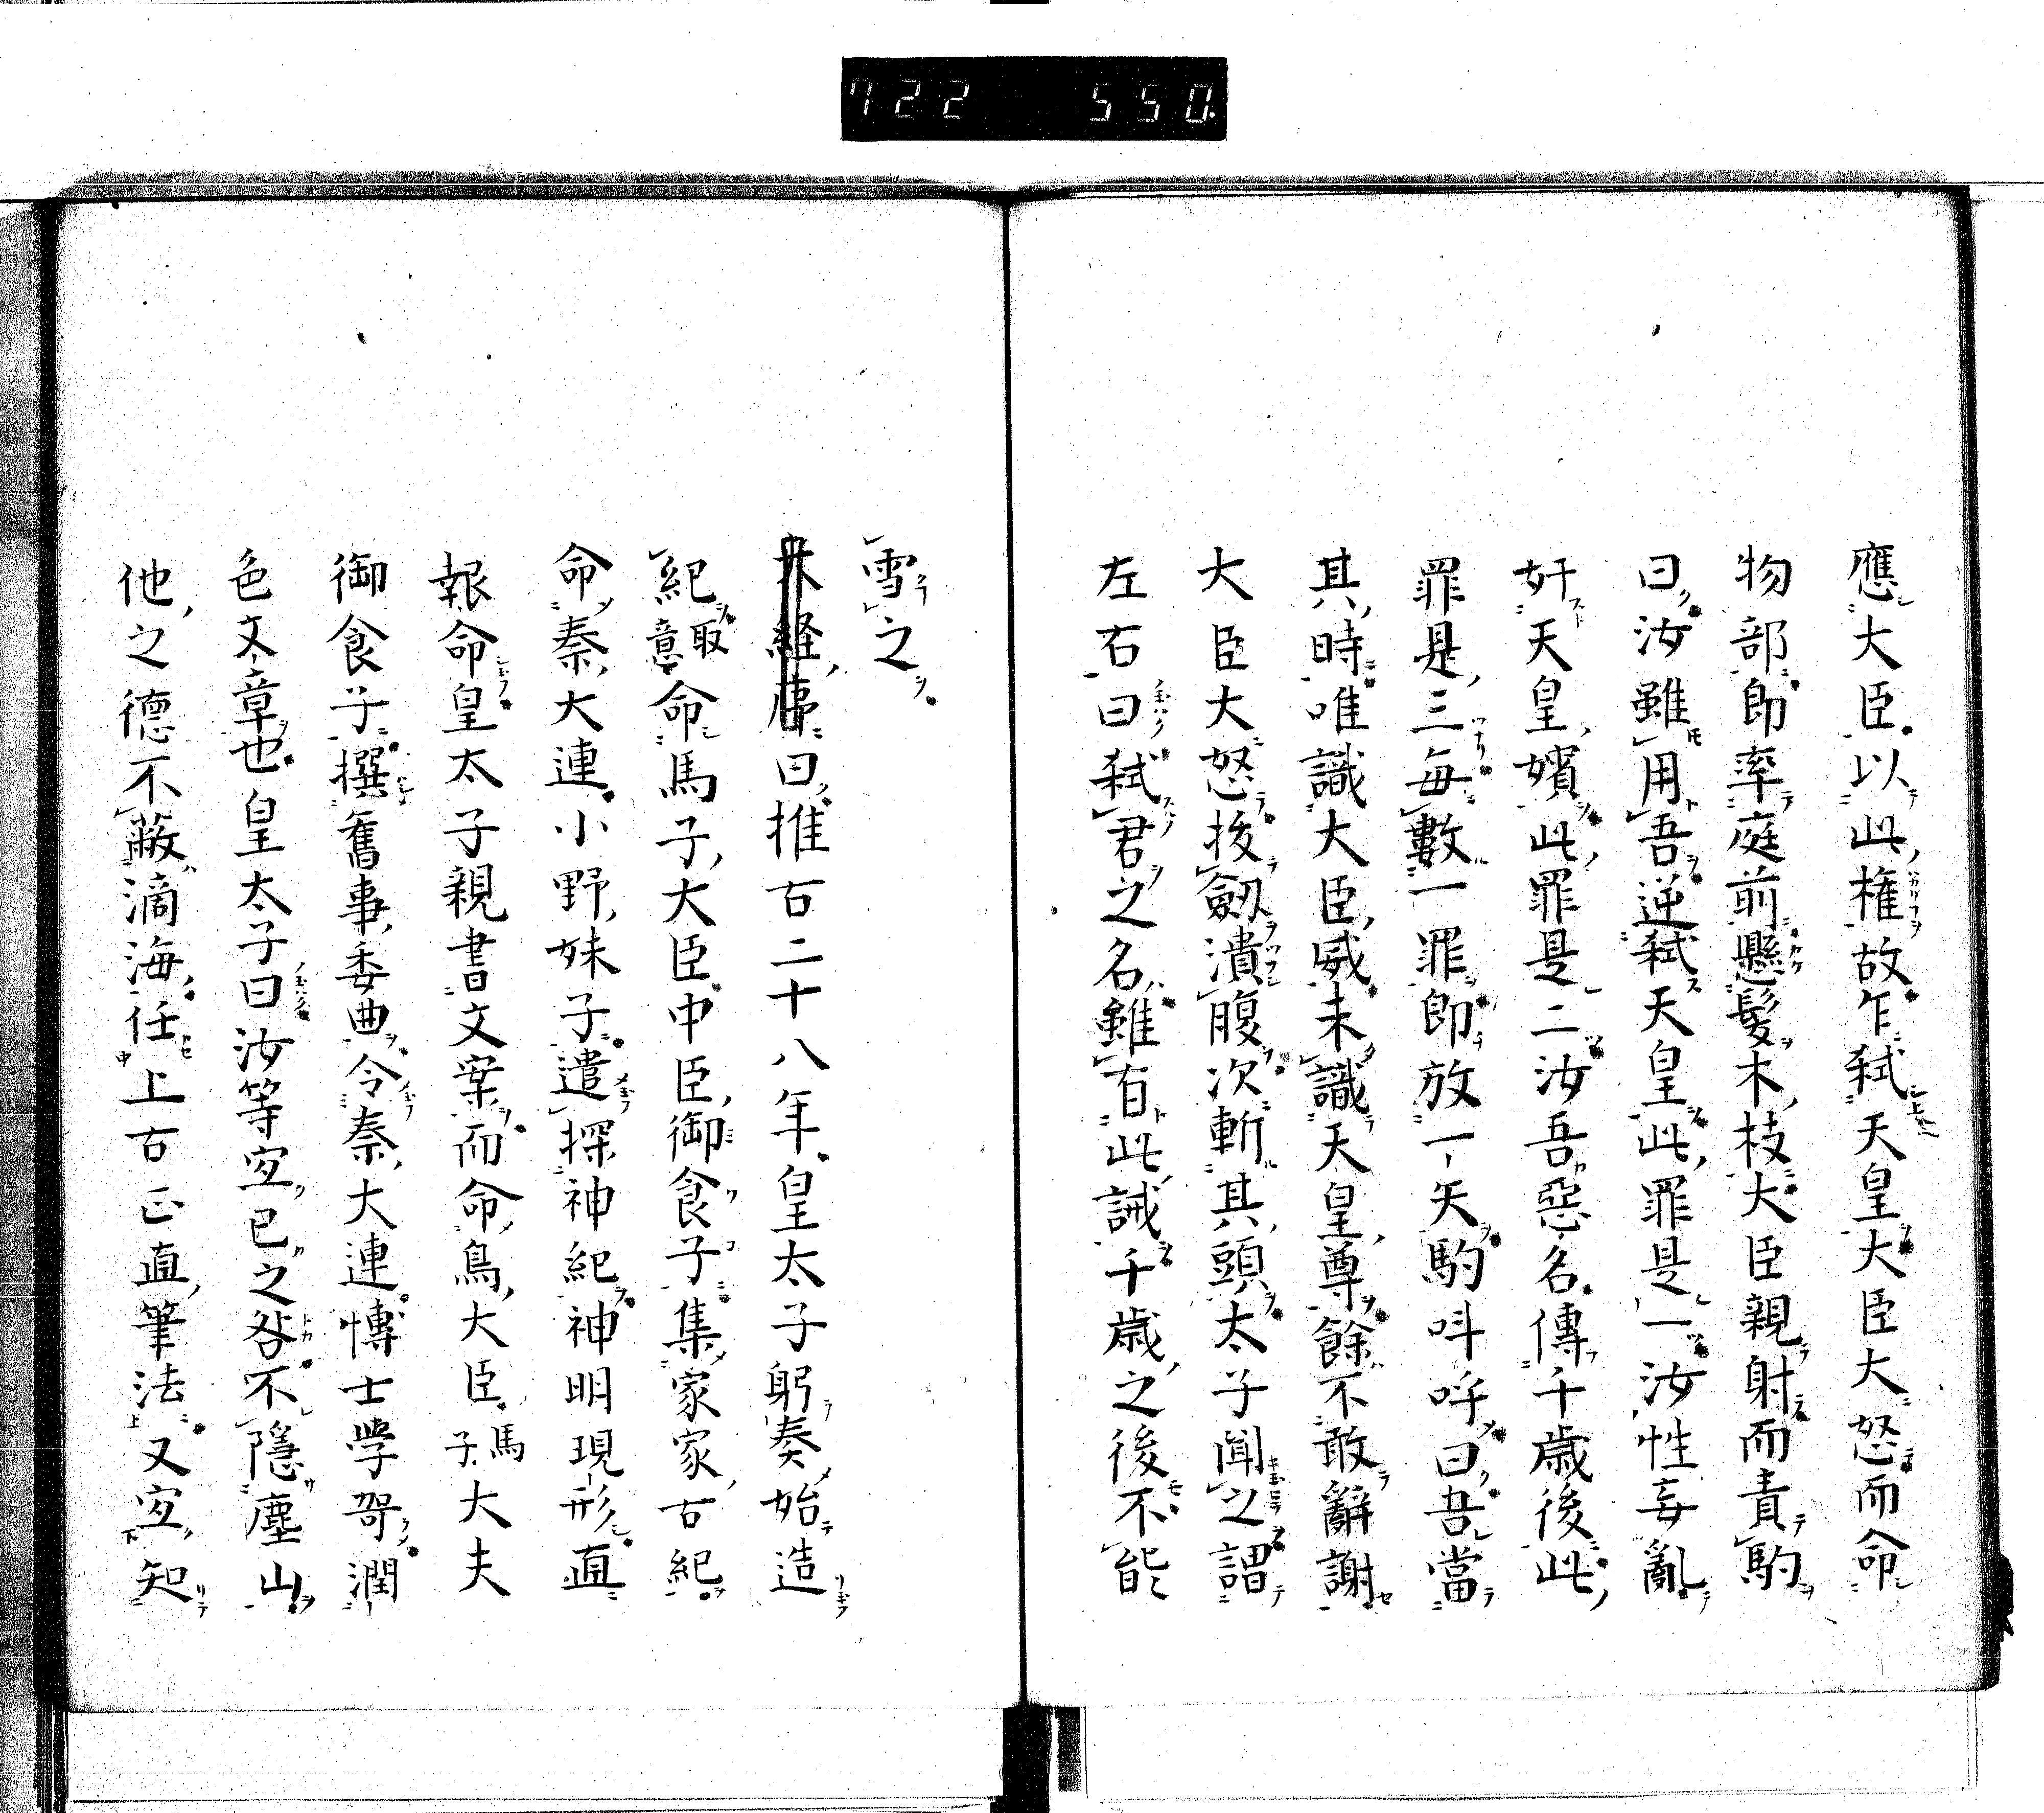 722 550.
應大臣以此権故乍弑天皇大臣大怒而命
物部即率庭前懸髪木枝大臣親射而責駒
曰汝雖用吾逆弑天皇此罪是一汝性妄亂
奸天皇嬪此罪是二汝吾惡名傳千歳後此
罪是三毎數一罪即放一矢駒叫呼曰吾當
其時唯識大臣威未識天皇尊餘不敢辭謝
大臣大怒抜劔潰腹次斬其頭太子聞之謂
左右曰弑君之名雖有此誡千歳之後不能
雪之
曰推古二十八年皇太子躬奏始造
紀取意命馬子大臣中臣御食子集家家古紀
命秦大連小野妹子遣探神紀神明現形直
報命皇太子親書文案而命鳥大臣馬子大夫
御食子撰舊事委曲令秦大連博士学哥潤
色文章也皇太子曰汝等冝已之咎不隱塵山
他之德不蔽滴海任上古正直筆法又冝知